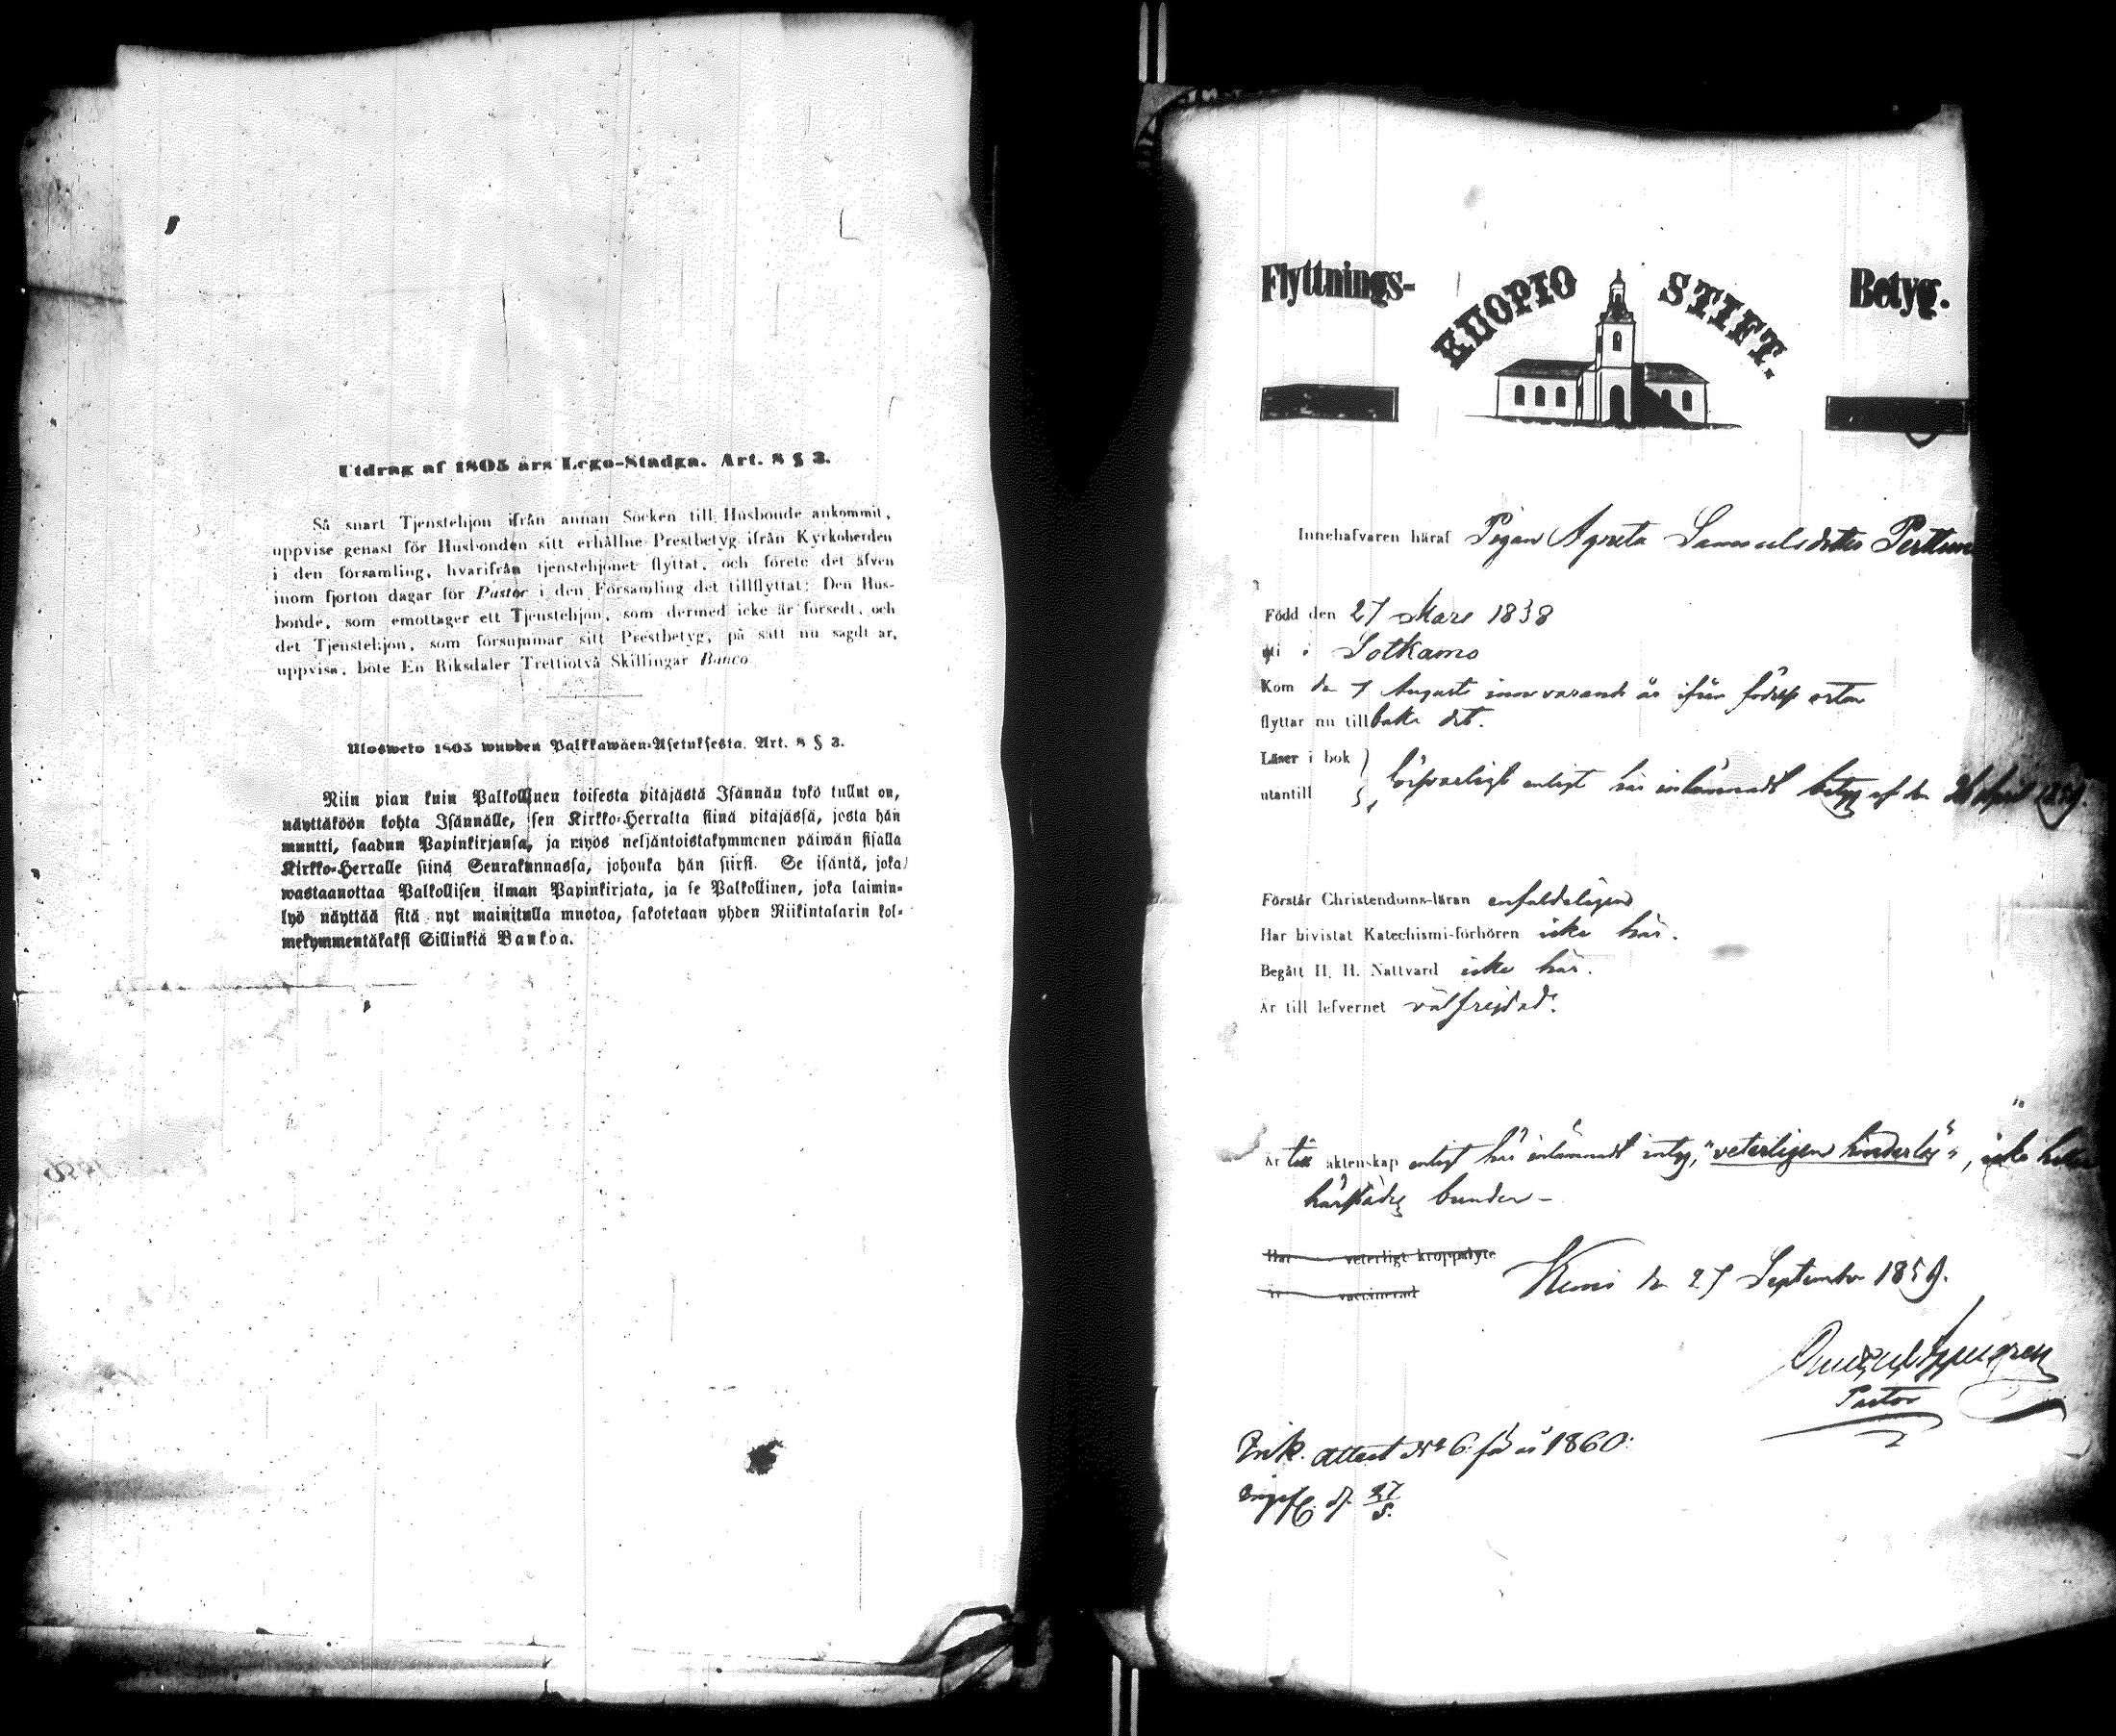 Utdrag af 1805 års Lego-Stadga. Art. 8 § 3.
Så snart Tjenstehjon ifrån annan Socken till Husbonde ankommit,
uppvise genast för Husbonden sitt erhållne Prestbetyg ifrån Kyrkoherden
i den församling, hvarifrån tjenstehjonet flyttat, och förete det äfven
inom fjorton dagar för Pastor i den Församling det tillflyttat; Den Hus-
bonde, som emottager ett Tjenstehjon, som dermed icke är försedt, och
det Tjenstehjon, som försummar sitt Prestbetyg, på sätt nu sagdt är,
uppvisa, böte En Riksdaler Trettiotvå Skillingar Banco.
Ulosweto 1805 wuoden Palkkawäen-Asetuksesta. Art. 8 § 3.
Niin pian kuin Palkollinen toisesta pitäjästä Isännän tykö tullut on,
näyttäköön kohta Isännälle, sen Kirkko-Herralta siinä pitäjässä, josta hän
muutti, saadun Papinkirjansa, ja myös neljäntoistakymmenen päiwän sisällä
Kirkko-Herralle siinä Seurakunnassa, johonka hän siirsi. Se isäntä, joka
wastaanottaa Palkollisen ilman Papinkirjata, ja se Palkollinen, joka laimin-
lyö näyttää sitä nyt mainitulla muotoa, sakotetaan yhden Riikintalarin kol-
mekymmentäkaksi Sillinkiä Bankoa.
Flyttnings- KUOPIO STIFT. Betyg.
Innehafvaren häraf Pigan Agneta Samuelsdotter Perttunen
Född den 27 Mars 1838
uti i Sotkamo
Kom den 7 Augusti innevarande år ifrån födelse orten
flyttar nu tillbaka dit.
Läser i bok
utantill försvarligt enligt här inlämnadt betyg af den 26 April 1859.
Förstår Christendoms-läran enfaldeligen
Har bivistat Katechismi-förhören icke här.
Begått H. H. Nattvard icke här.
Är till lefvernet välfrejdad.
Är till äktenskap enligt här inlämnadt intyg, "veterligen hinderlös", icke heller
härstädes bunden –
Har veterligt kroppslyte
Är vaccinerad
Kemi den 27 September 1859.
Pastor
Ink. attest N:o 6 för år 1860.
27/5.